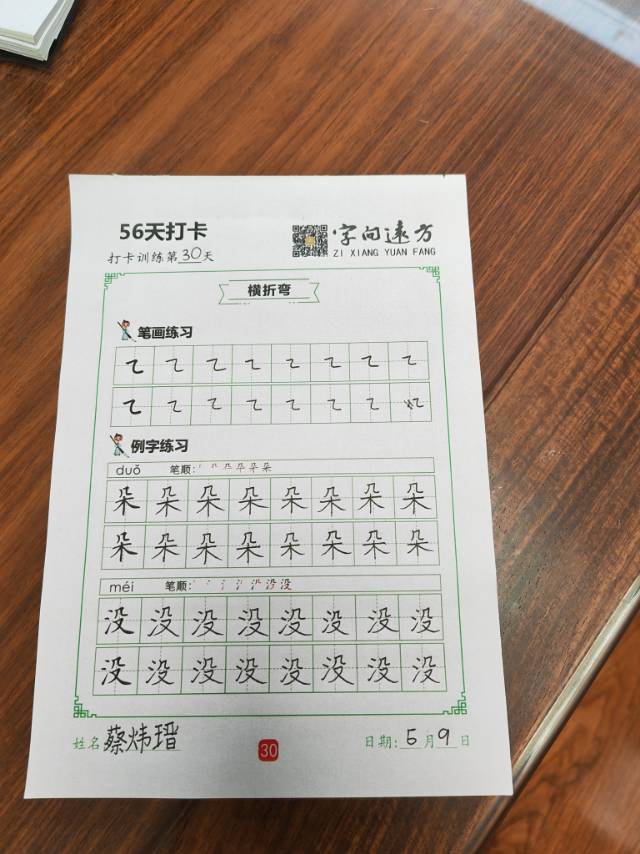 56天打卡
字向远方
打卡训练第30天
ZI XIANG YUAN FANG
横折弯
笔画练习
例字练习
duǒ 笔顺:
朵朵朵朵朵朵朵朵
朵朵朵朵朵朵朵朵
méi 笔顺:
没没没没没没没没
没没没没没没没没
姓名蔡炜瑨
30
日期:5月9日